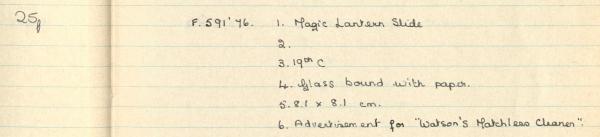 25f F.591'76. 1. Magic Lantern Slide
2.
3. 19th C
4. Glass bound with paper.
5. 8.1 x 8.1 cm.
6. Advertisement for "Watson's Matchless Cleaner".